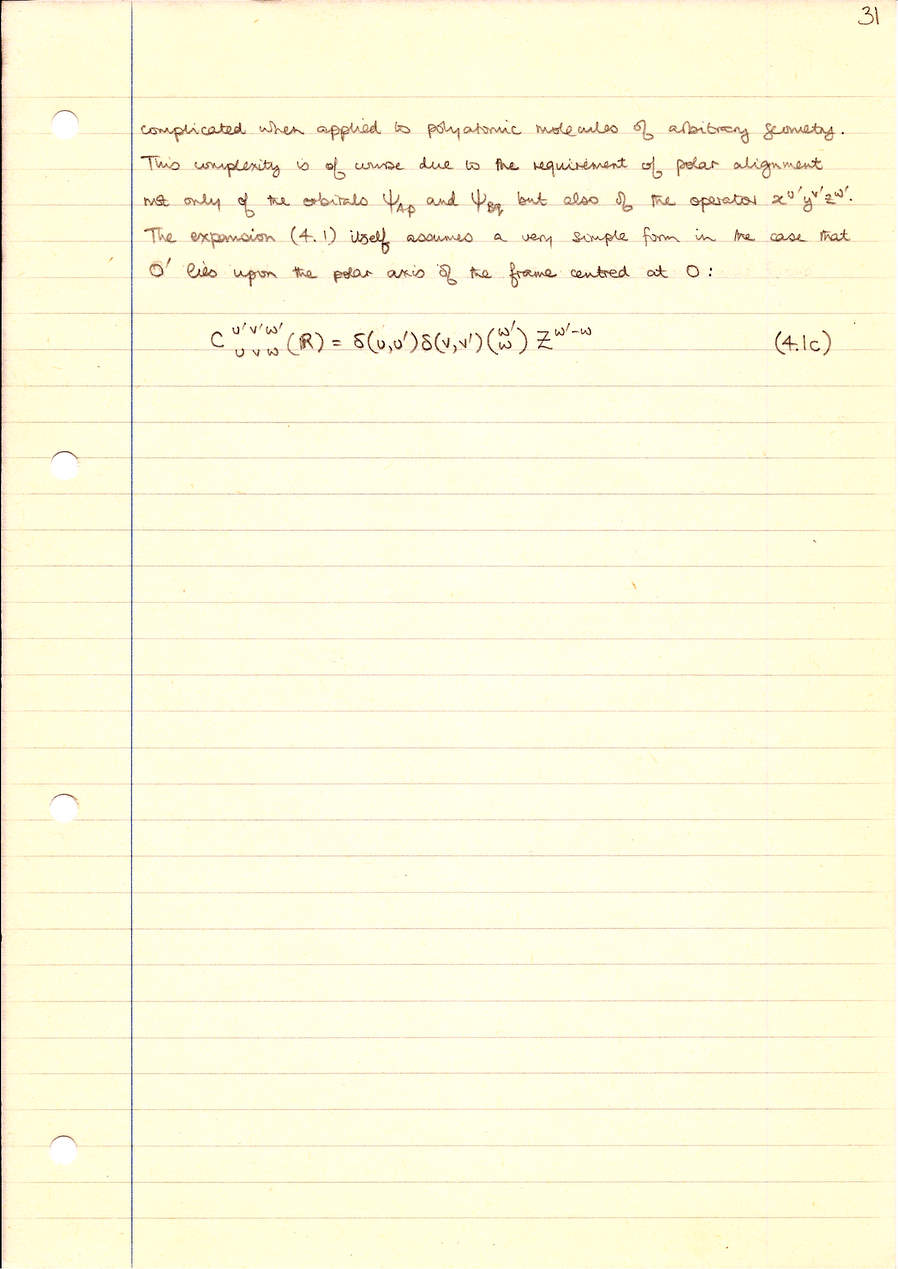 31
complicated when applied to polyatomic molecules of arbitrary geometry.
This complexity is of course due to the requirement of polar alignment
not only of the orbitals ψ_Ap and ψ_Bq but also of the operator x^u' y^v' z^w'.
The expansion (4.1) itself assumes a very simple form in the case that
O' lies upon the polar axis of the frame centred at O:
C^{u'v'w'}_{u v w}(ℝ) = δ(u,u')δ(v,v')(^{w'}_{w}) Z^{w'-w} (4.1c)